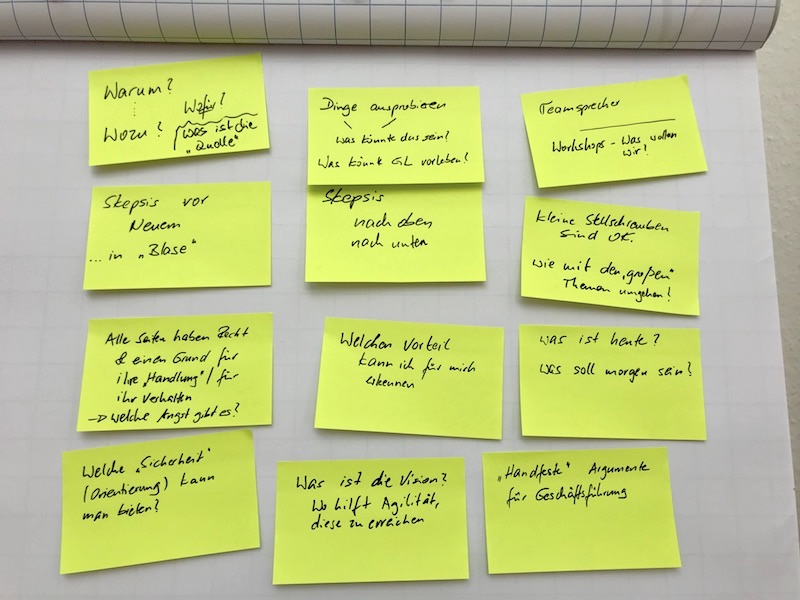 Warum?
Wozu?
Wofür?
was ist die
„Quelle"
Dinge ausprobieren
was könnte das sein?
Was könnte GL vorleben?
Teamsprecher
Workshops - Was wollen
wir?
Skepsis vor
Neuem
... in „Blase"
Skepsis
nach oben
nach unten
kleine Stellschrauben
sind OK.
wie mit den „großen"
Themen umgehen?
Alle Seiten haben Recht
& einen Grund für
ihre „Handlung" / für
ihr Verhalten
→ welche Angst gibt es?
Welchen Vorteil
kann ich für mich
erkennen
was ist heute?
was soll morgen sein?
Welche „Sicherheit"
(Orientierung) kann
man bieten?
Was ist die Vision?
Wo hilft Agilität,
diese zu erreichen
„Handfeste" Argumente
für Geschäftsführung